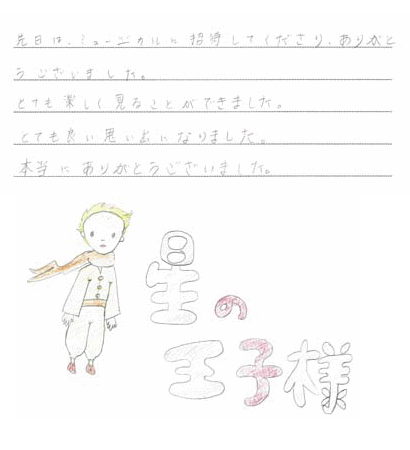 先日は、ミュージカルに招待してくださり、ありがと
うございました。
とても楽しく見ることができました。
とても良い思い出になりました。
本当にありがとうございました。
星の
王子様